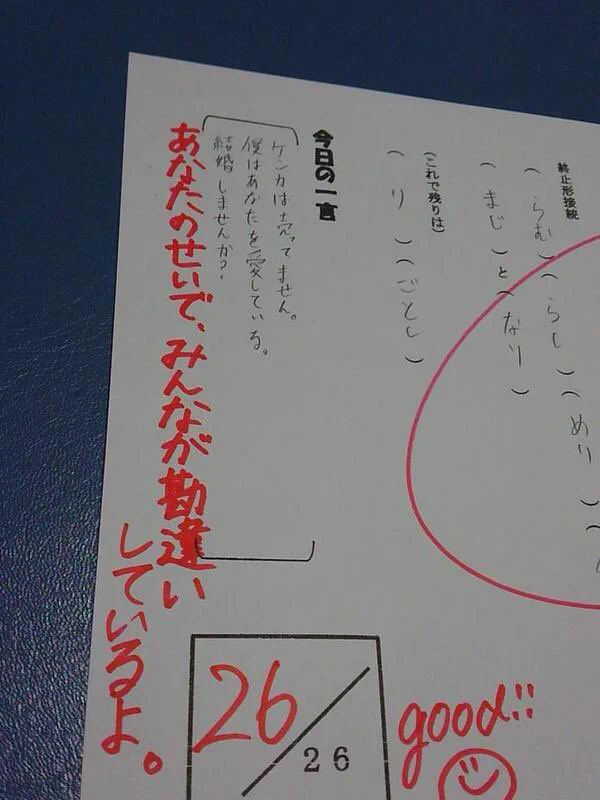 終止形接続
( らむ )( らし )( めり )(
( まじ )と( なり )
(これで残りは)
( り )( ごとし )
今日の一言
ケンカは売ってません。
僕はあなたを愛している。
結婚しませんか?
あなたのせいで、みんなが勘違い
しているよ。
26
26
good!!